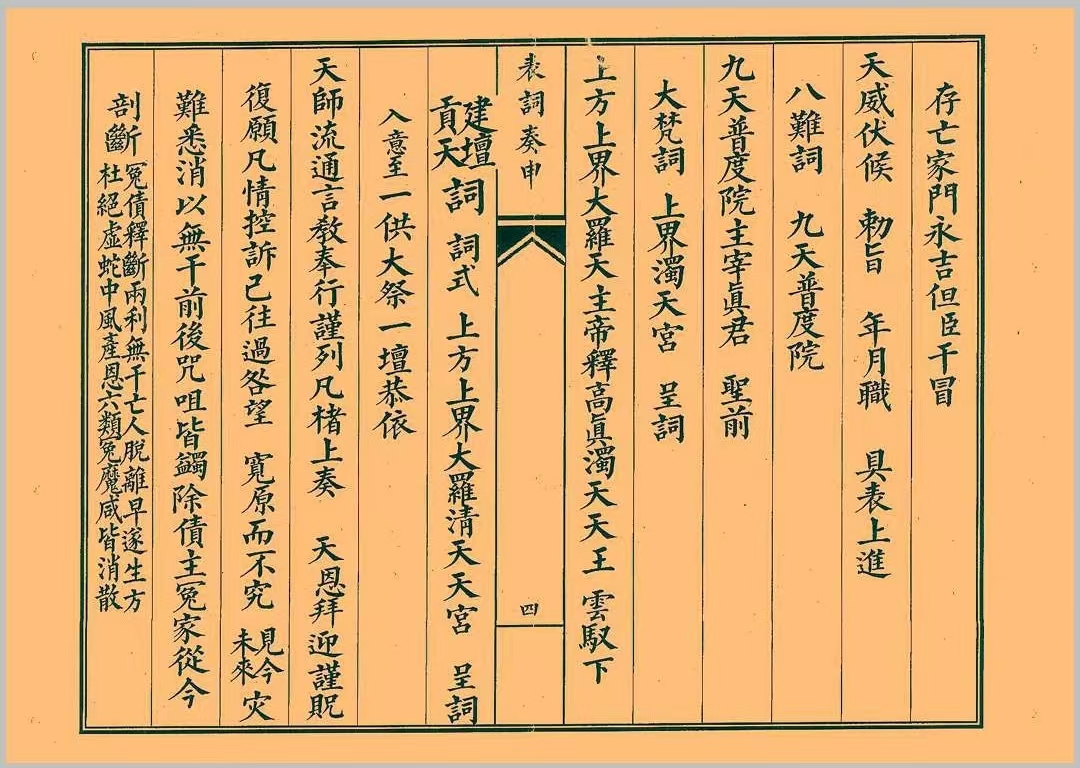 存亡家門永吉但臣干冒
天威伏候 勅旨 年月職 具表上進
八難詞 九天普度院
九天普度院主宰眞君 聖前
大梵詞 上界濁天宮 呈詞
上方上界大羅天主帝釋高眞濁天天王 雲馭下
表詞奏申
四
建壇
貢天
詞 詞式 上方上界大羅清天天宮 呈詞
入意至一供大祭一壇恭依
天師流通言教奉行謹列凡楮上奏 天恩拜迎謹貺
復願凡情控訴已往過咎望 寬原而不究
見今
未來
灾
難悉消以無干前後咒咀皆蠲除債主冤家從今
剖斷
冤債釋斷兩利無干亡人脫離早遂生方
杜絕虛蛇中風產恩六類冤魔咸皆消散